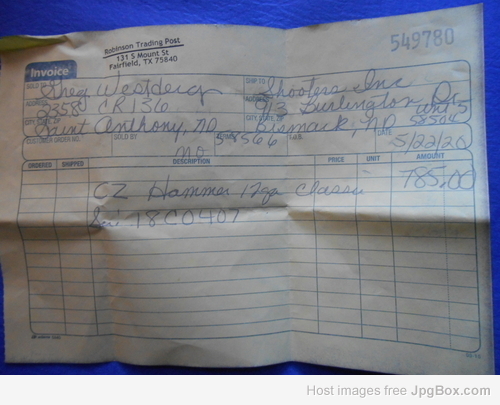 Robinson Trading Post
131 S Mount St
Fairfield, TX 75840
549780
Invoice
SOLD TO Greg
SHIP TO Shooters Inc
ADDRESS 2358 CR 136
ADDRESS 913 Burlington Dr
Unit 5
CITY, STATE, ZIP Saint Anthony, ND
CITY, STATE, ZIP Bismarck, ND 58504
CUSTOMER ORDER NO. SOLD BY TERMS F.O.B. DATE
58566
5/22/20
ORDERED SHIPPED DESCRIPTION PRICE UNIT AMOUNT
CZ Hammer 12ga Classic 785.00
78C0407